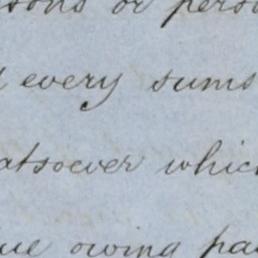 sons or perso
d every sums
atsoever whic
ue owing pa